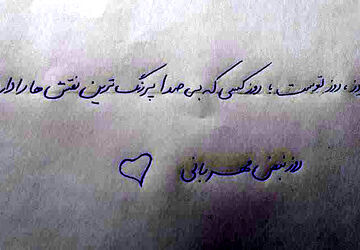 روز، روز توست؛ روز کسی که بی صدا پررنگ ترین نقش ها را دار
روز نبض مهربانی